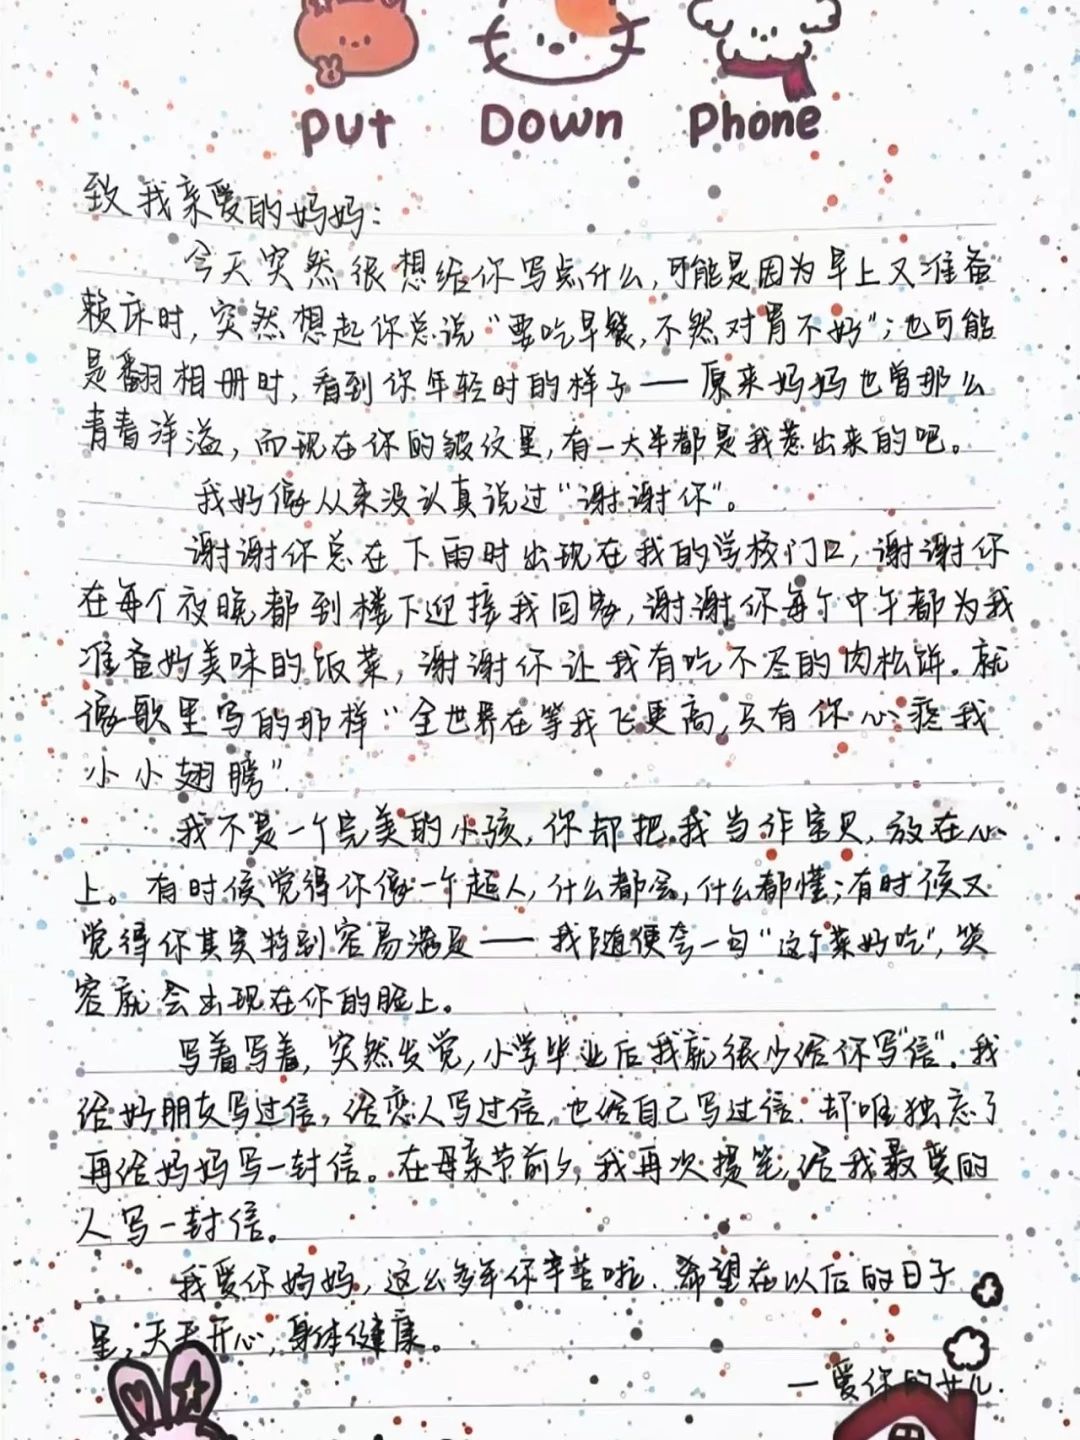 Put Down Phone
致我亲爱的妈妈：
今天突然很想给你写点什么，可能是因为早上又准备
赖床时，突然想起你总说“要吃早餐，不然对胃不好”；也可能
是翻相册时，看到你年轻时的样子——原来妈妈也曾那么
青春洋溢，而现在你的皱纹里，有一大半都是我惹出来的吧。
我好像从来没认真说过“谢谢你”。
谢谢你总在下雨时出现在我的学校门口，谢谢你
在每个夜晚都到楼下迎接我回家，谢谢你每个中午都为我
准备好美味的饭菜，谢谢你让我有吃不尽的肉松饼。就
像歌里写的那样“全世界在等我飞更高，只有你心疼我
小小翅膀”.
我不是一个完美的小孩，你却把我当作宝贝，放在心
上。有时候觉得你像一个超人，什么都会，什么都懂；有时候又
觉得你其实特别容易满足——我随便夸一句“这个菜好吃”，笑
容就会出现在你的脸上。
写着写着，突然发觉，小学毕业后我就很少给你写“信”.我
给好朋友写过信，给恋人写过信，也给自己写过信.却唯独忘了
再给妈妈写一封信。在母亲节前夕，我再次提笔，给我最爱的
人写一封信。
我爱你妈妈，这么多年你辛苦啦.希望在以后的日子
里，天天开心，身体健康。
—爱你的女儿.